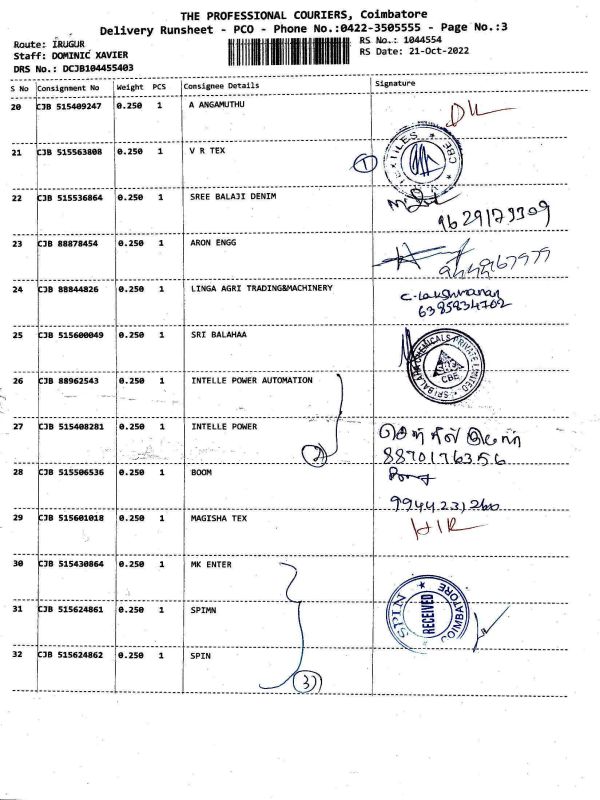 THE PROFESSIONAL COURIERS, Coimbatore
Delivery Runsheet - PCO - Phone No.:0422-3505555 - Page No.:3
Route: IRUGUR
RS No.: 1044554
Staff: DOMINIC XAVIER
RS Date: 21-Oct-2022
DRS No.: DCJB104455403
S No Consignment No Weight PCS Consignee Details Signature
20 CJB 515409247 0.250 1 A ANGAMUTHU
21 CJB 515563808 0.250 1 V R TEX 1
TEXTILES * CBE
22 CJB 515536864 0.250 1 SREE BALAJI DENIM
9629173309
23 CJB 88878454 0.250 1 ARON ENGG
24 CJB 88844826 0.250 1 LINGA AGRI TRADING&MACHINERY
C. Lakshmanan
6385834702
25 CJB 515600049 0.250 1 SRI BALAHAA
SRI BALAHAA CHEMICALS PRIVATE LIMITED
CBE
26 CJB 88962543 0.250 1 INTELLE POWER AUTOMATION
27 CJB 515408281 0.250 1 INTELLE POWER 2
8870176356
28 CJB 515506536 0.250 1 BOOM
9944231260
29 CJB 515601018 0.250 1 MAGISHA TEX
30 CJB 515430864 0.250 1 MK ENTER
31 CJB 515624861 0.250 1 SPIMN
SPIN * COIMBATORE
RECEIVED
32 CJB 515624862 0.250 1 SPIN
3